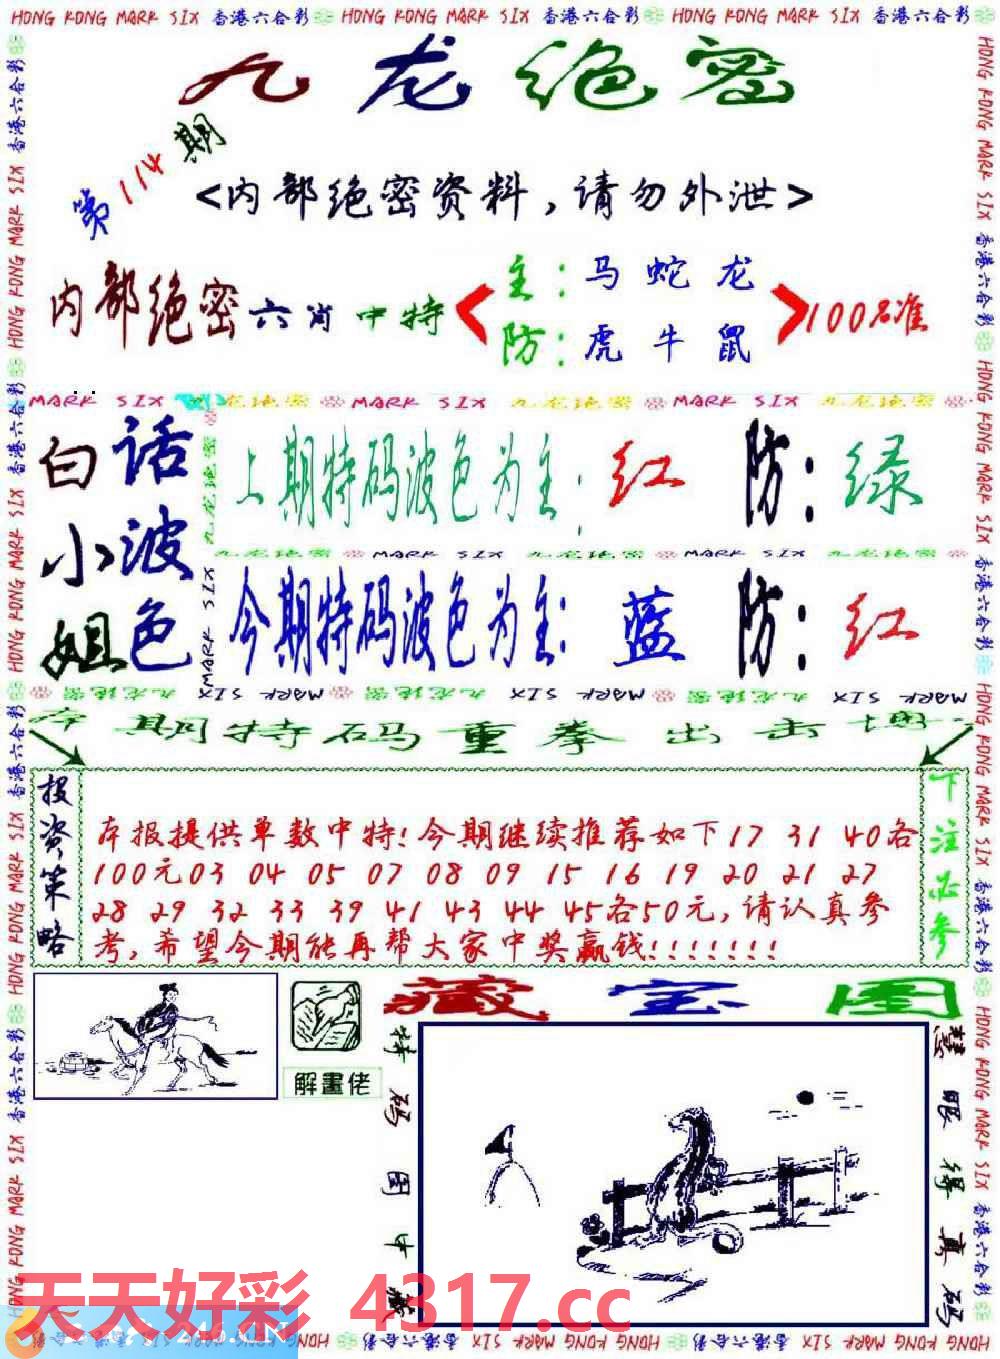 HONG KONG MARK SIX 香港六合彩 HONG KONG MARK SIX 香港六合彩 HONG KONG MARK SIX 香港六合彩
九龙绝密
第114期
<内部绝密资料，请勿外泄>
内部绝密六肖中特
主：马蛇龙
防：虎牛鼠
100%准
MARK SIX 九龙绝密 MARK SIX 九龙绝密 MARK SIX 九龙绝密
白小姐
话波色
上期特码波色为主：红 防：绿
九龙绝密 MARK SIX 九龙绝密 MARK SIX 九龙绝密
今期特码波色为主：蓝 防：红
本期特码重拳出击
投资策略
本报提供单数中特!今期继续推荐如下17 31 40各
100元03 04 05 07 08 09 15 16 19 20 21 27
28 29 32 33 39 41 43 44 45各50元,请认真参
考,希望今期能再帮大家中奖赢钱!!!!!!!
下注必参
藏宝图
解畫佬
特码图中藏
慧眼得真码
天天好彩 4317.cc
HONG KONG MARK SIX 香港六合彩